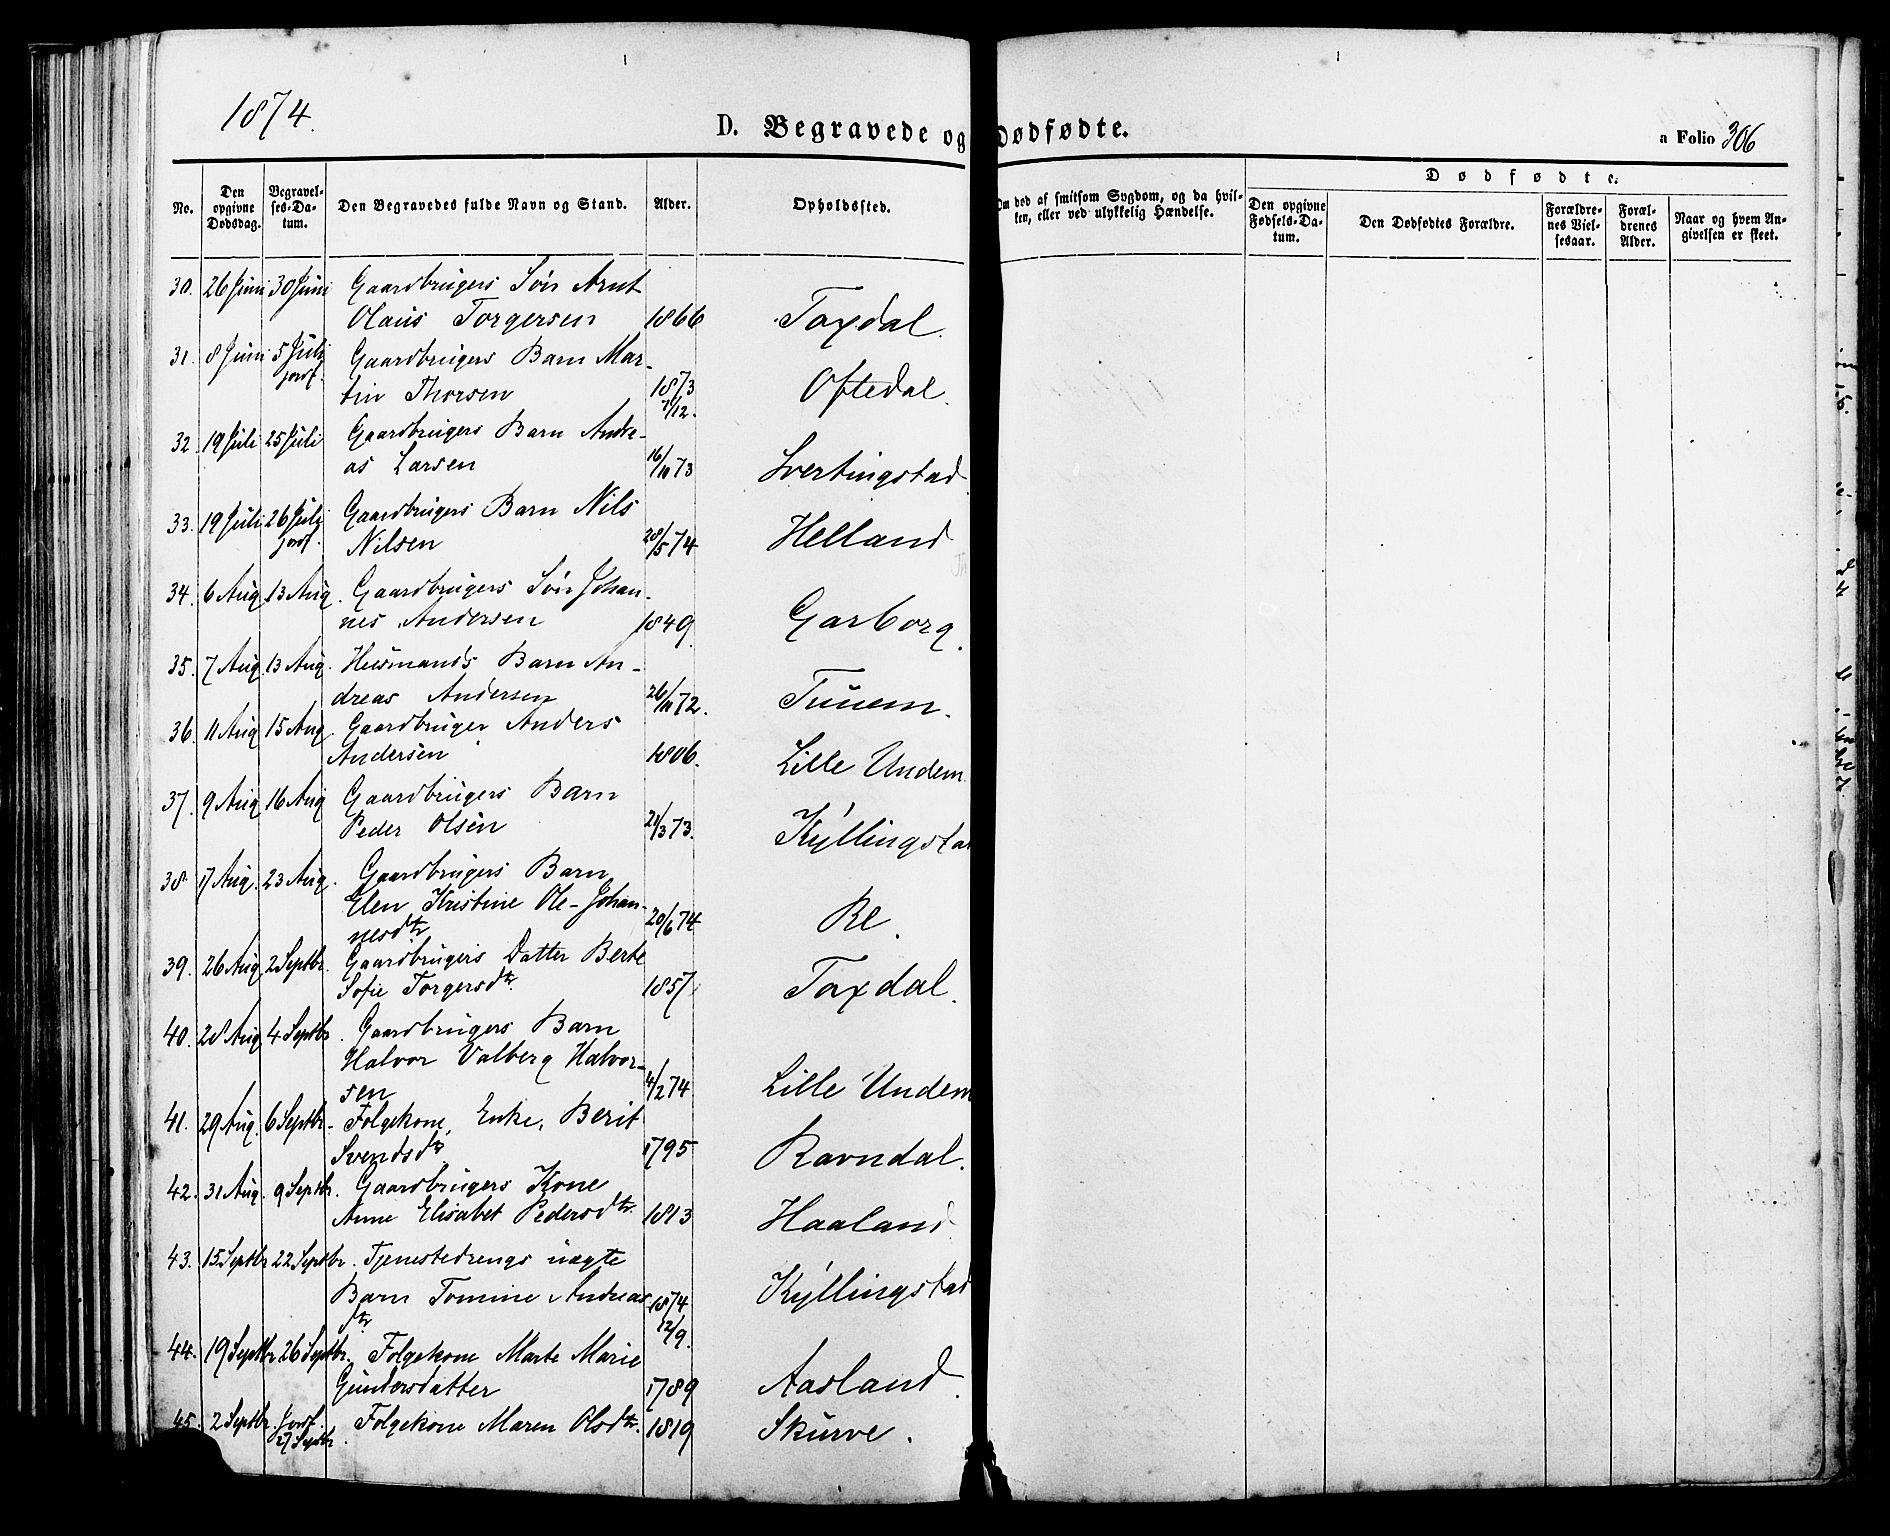 1874.
D. Begravede og Dødfødte.
a Folio 306
No.
Den opgivne Dødsdag.
Begravelses-Datum.
Den Begravedes fulde Navn og Stand.
Alder.
Opholdssted.
Om død af smitsom Sygdom, og da hvilken, eller ved ulykkelig Hændelse.
Dødfødte.
Den opgivne Fødsels-Datum.
Den Dødfødtes Forældre.
Forældrenes Vielsesaar.
Forældrenes Alder.
Naar og hvem Angivelsen er skeet.
30. 26 Juni 30 Juni Gaardbrugers Søn Arnt
Olaus Torgersen 1866 Taxdal.
31. 8 Juni 5 Juli Gaardbrugers Barn Mar-
jordf. tin Thorsen 1873 7/12. Oftedal.
32. 19 Juli 25 Juli Gaardbrugers Barn Andre-
as Larsen 16/10 73 Svertingstad
33. 19 Juli 26 Juli Gaardbrugers Barn Nils
jordf. Nilsen 28/5 74 Helland
34. 6 Aug. 13 Aug. Gaardbrugers Søn Johan-
nes Andersen 1849. Garborg.
35. 7 Aug. 13 Aug. Husmands Barn An-
dreas Andersen 26/10 72. Tunem.
36. 11 Aug 15 Aug. Gaardbruger Anders
Andersen 1806. Lille Undem
37. 9 Aug 16 Aug Gaardbrugers Barn
Peder Olsen 21/3 73. Kyllingstad
38. 17 Aug. 23 Aug. Gaardbrugers Barn
Elen Kristine Ole-Johan-
nesdtr 20/6 74 Re.
39. 26 Aug 2 Septbr. Gaardbrugers Datter Berte
Sofie Torgersdtr. 1857. Taxdal.
40. 28 Aug 4 Septbr. Gaardbrugers Barn
Halvor Valberg Halvor-
sen 4/2 74 Lille Undem
41. 29 Aug. 6 Septbr. Folgekone, Enke, Berit
Svendsdtr 1795 Ravndal.
42. 31 Aug. 9 Septbr. Gaardbrugers Kone
Anne Elisabet Pedersdtr. 1813 Haaland
43. 15 Septbr 22 Septbr. Tjenestedrengs uægte
Barn Tomine Andreas
dtr 1874 12/9. Kyllingstad
44. 19 Septbr. 26 Septbr. Folgekone Marte Marie
Gundersdatter 1789 Aasland.
45. 2 Septbr. Jordf. 27 Septbr. Folgekone Maren Olsdtr. 1819 Skurve.